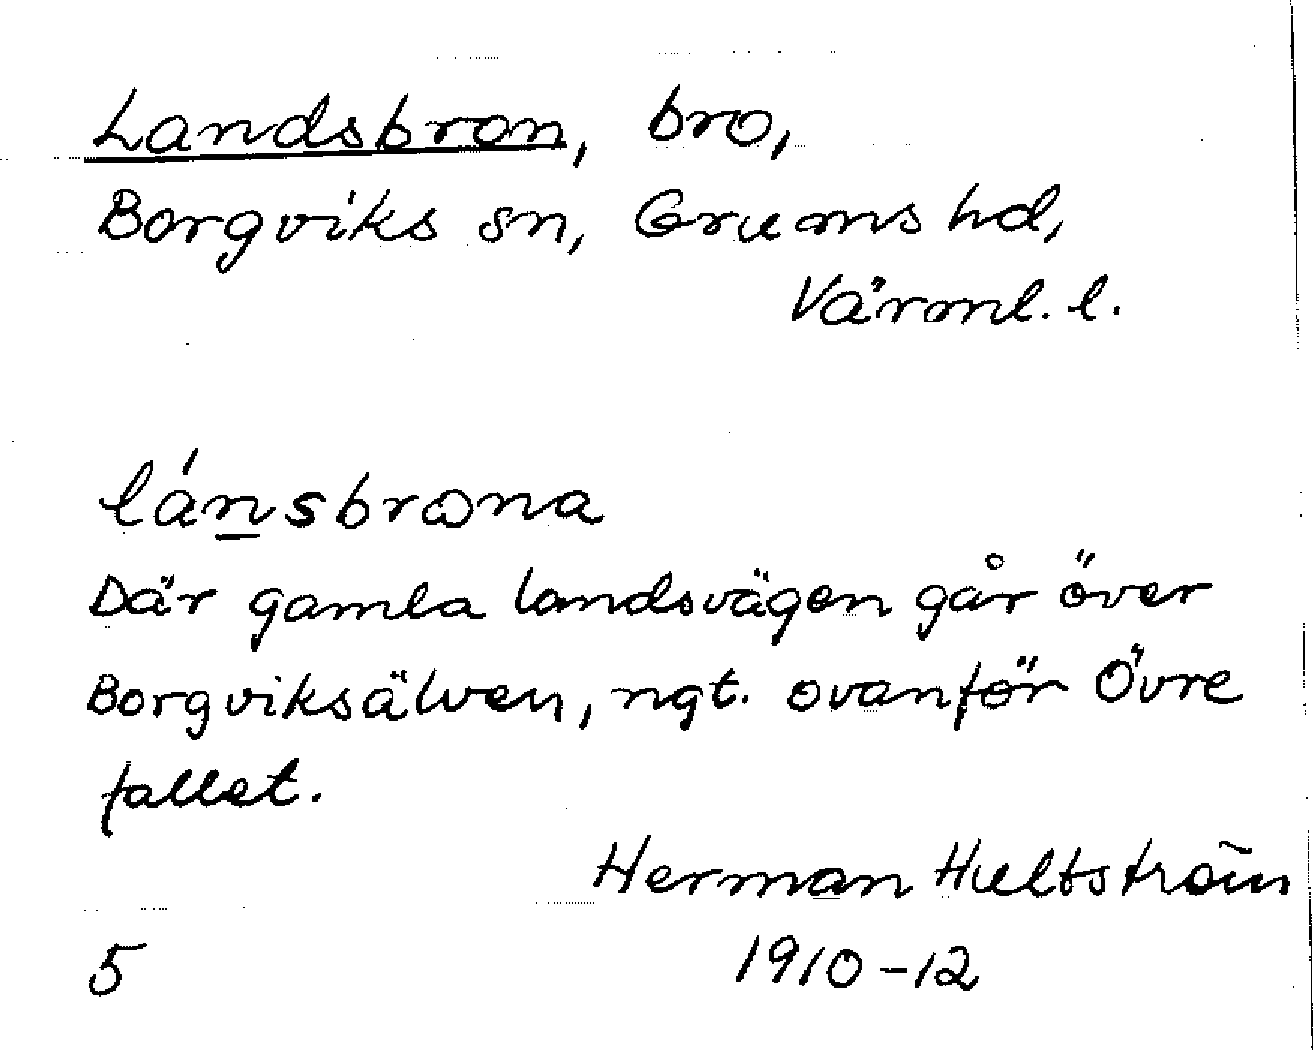 Landsbron, bro,
Borgviks sn, Grums hd,
Värml. l.
lánsbrωna
Där gamla landsvägen går över
Borgviksälven, ngt. ovanför Övre
fallet.
Herman Hultström
5 1910-12